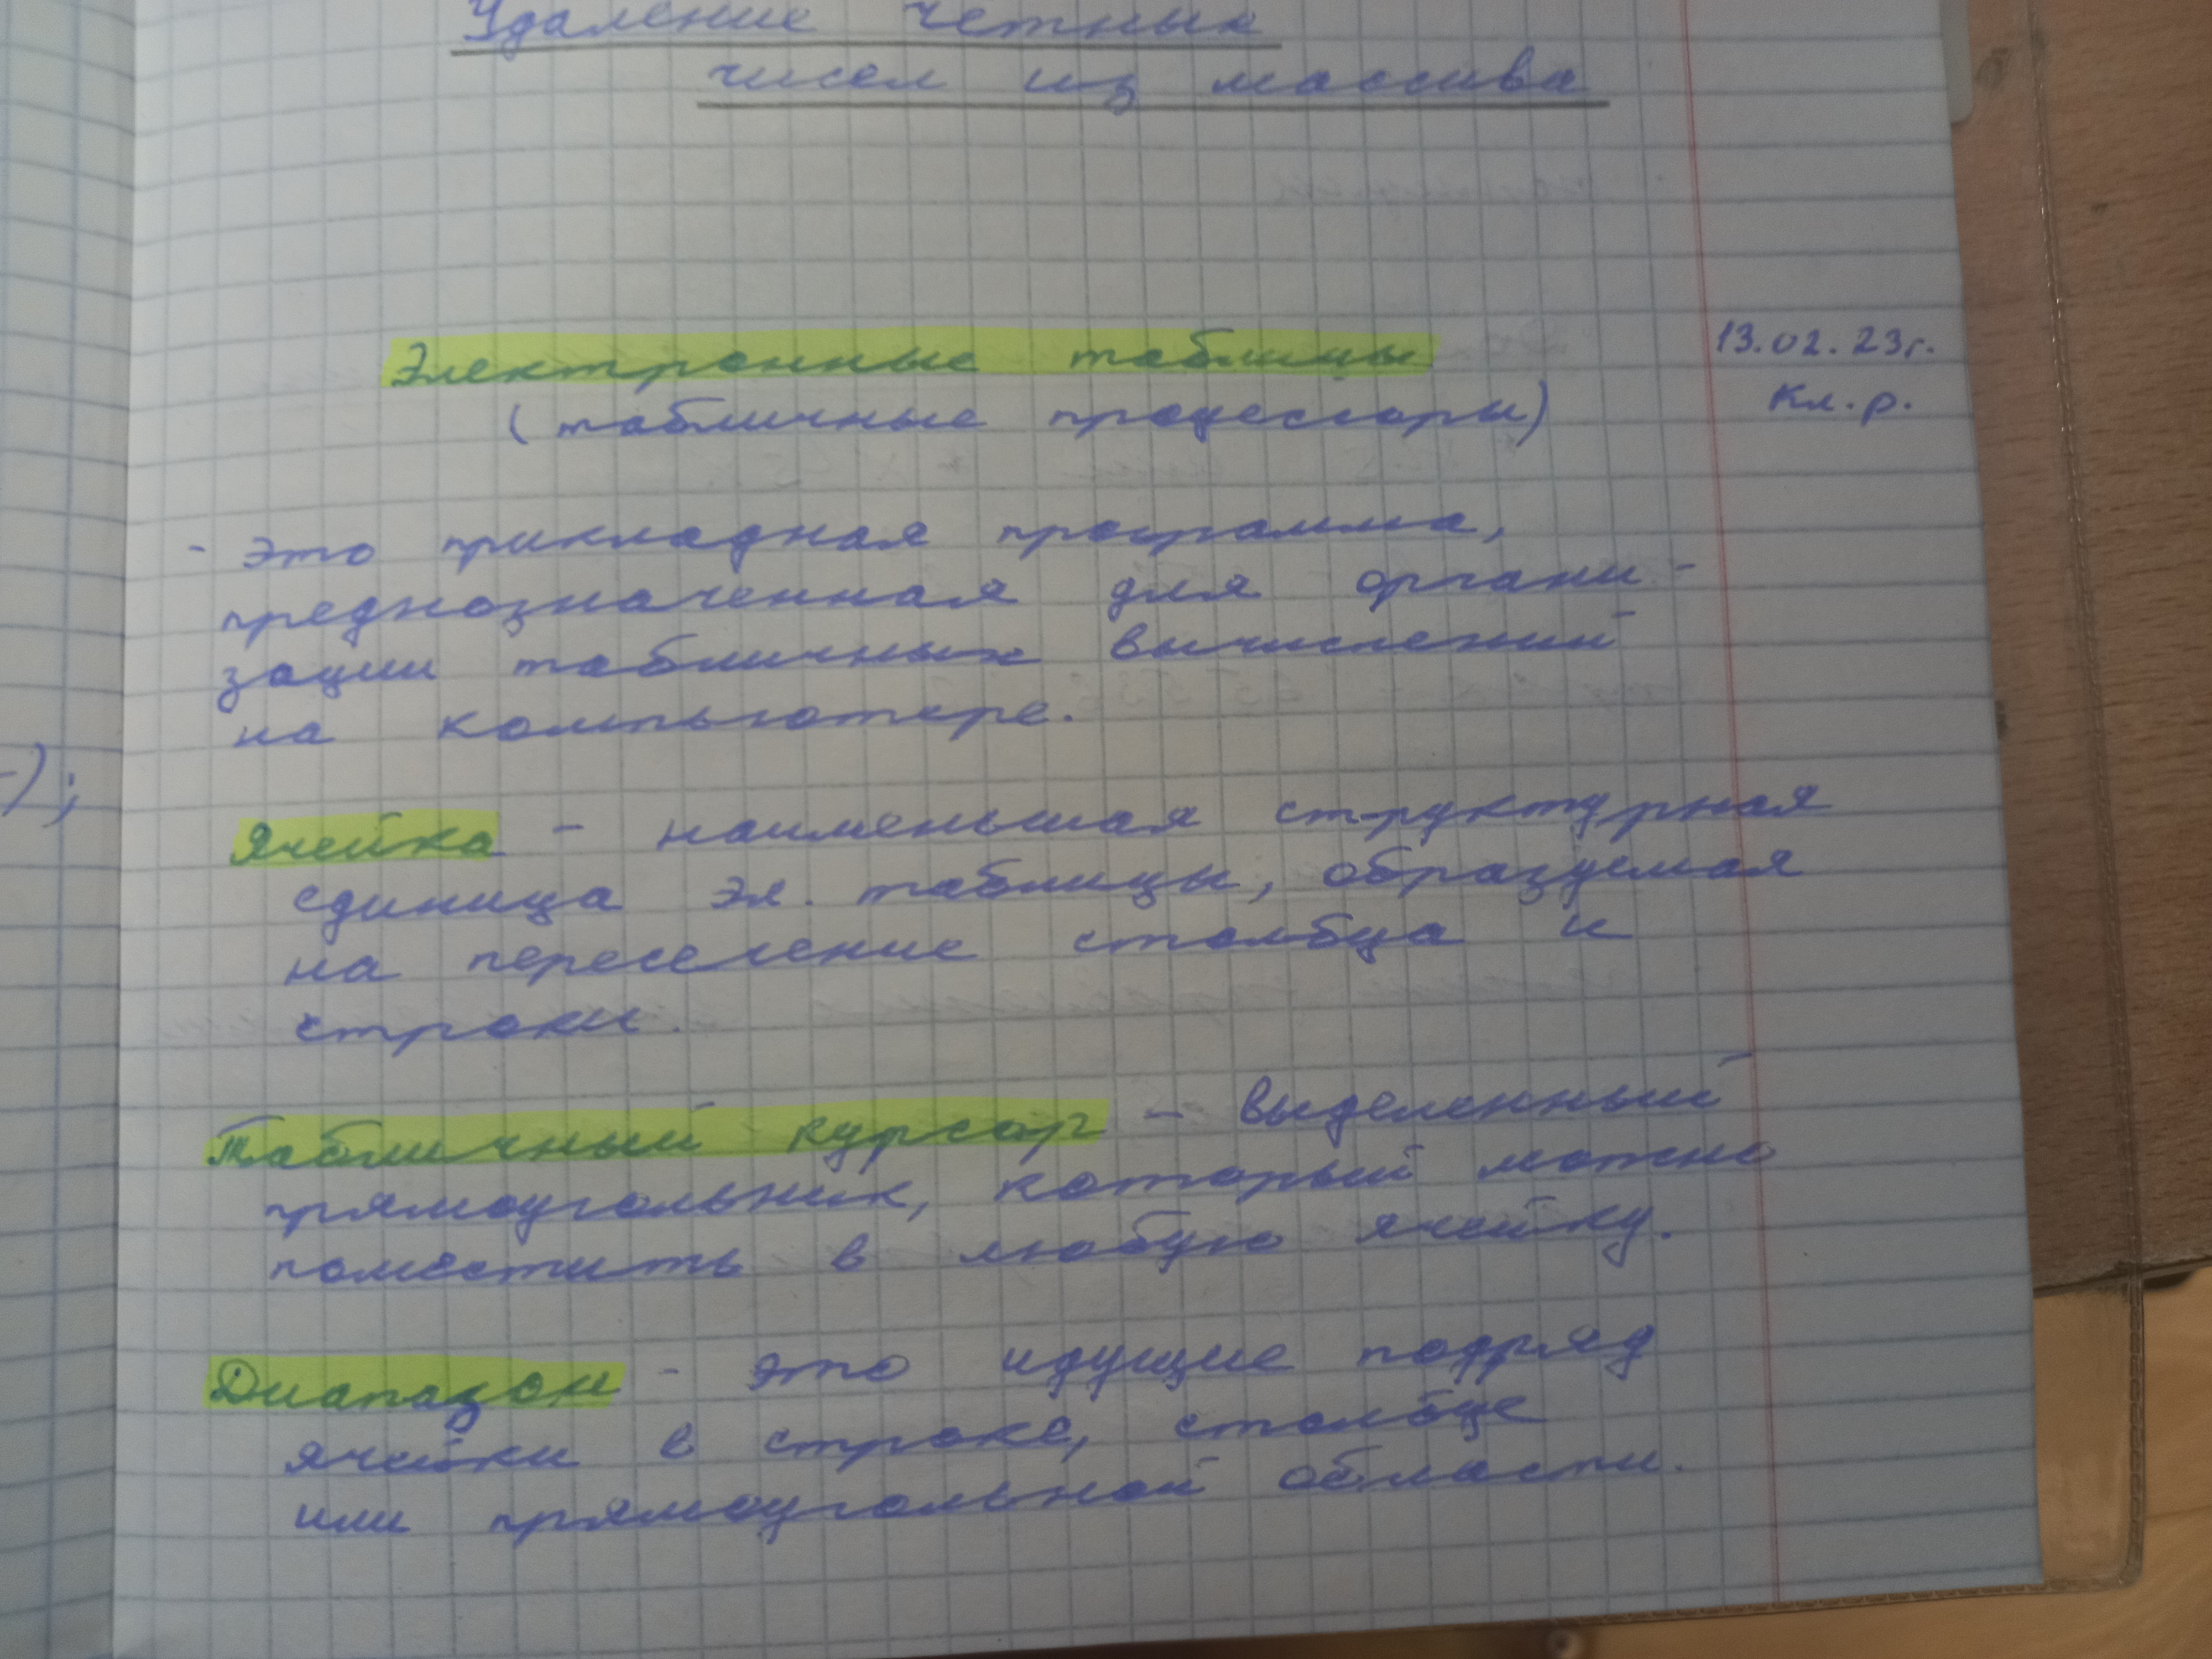 Удаление чётных
чисел из массива
13.02.23г.
Электронные таблицы
Кл.р.
(табличные процессоры)
- Это прикладная программа,
предназначенная для органи-
зации табличных вычислений
на компьютере.
Ячейка - наименьшая структурная
единица эл. таблицы, образуемая
на пересечение столбца и
строки.
Табличный курсор - выделенный
прямоугольник, который можно
поместить в любую ячейку.
Диапазон - это идущие подряд
ячейки в строке, столбце
или прямоугольной области.
);